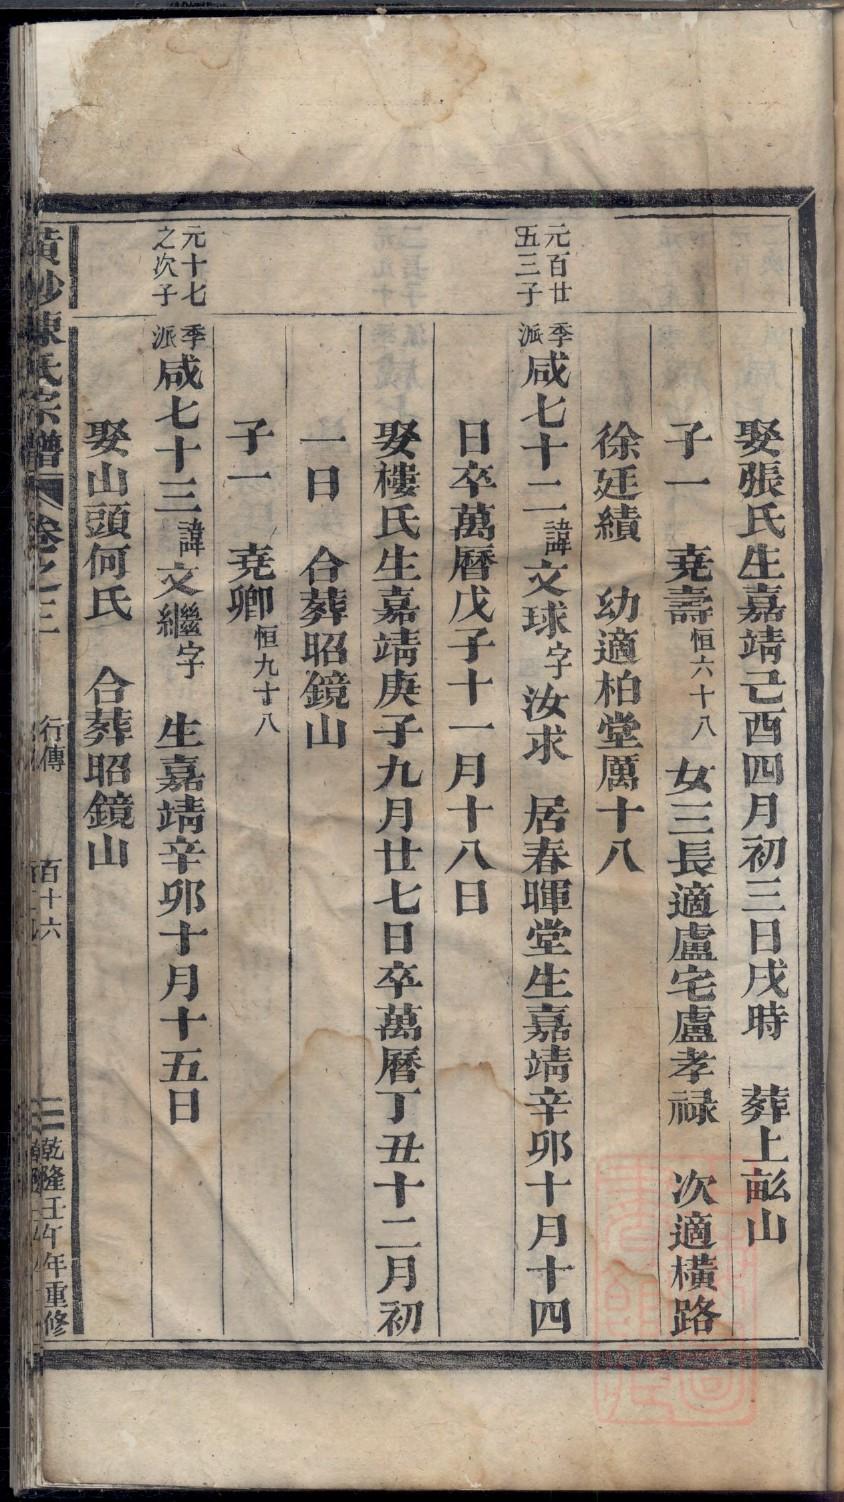 娶張氏生嘉靖己酉四月初三日戌時　葬上畝山
子一　堯壽恒六十八　女三長適盧宅盧孝祿　次適橫路
徐廷績　幼適柏堂厲十八
元百廿
五三子
季派咸七十二諱文球字汝求　居春暉堂生嘉靖辛卯十月十四
日卒萬曆戊子十一月十八日
娶樓氏生嘉靖庚子九月廿七日卒萬曆丁丑十二月初
一日　合葬昭鏡山
子一　堯卿恒九十八
元十七
之次子
季派咸七十三諱文繼字　生嘉靖辛卯十月十五日
娶山頭何氏　合葬昭鏡山
陳氏宗譜　卷之三　行傳　百十六　乾隆壬午年重修